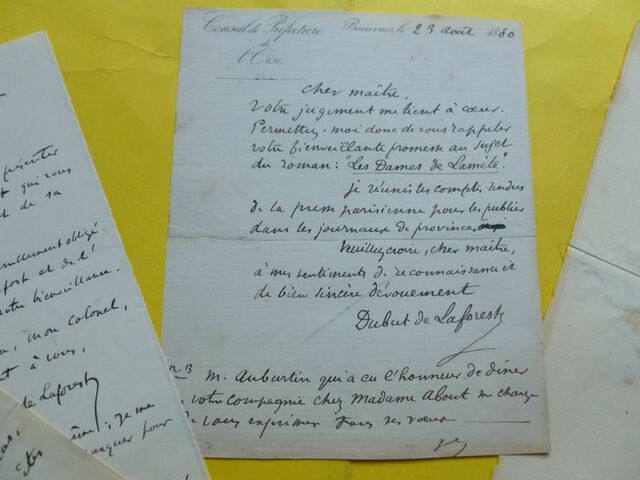 Conseil de Préfecture
de
l'Oise
Beauvais, le 23 août 1880
Cher maître,
Votre jugement me tient à cœur.
Permettez-moi donc de vous rappeler
votre bienveillante promesse au sujet
du roman: "Les Dames de Lamète".
je réunis les comptes rendus
de la presse parisienne pour les publier
dans les journaux de province
Veuillez croire, cher maître,
à mes sentiments de reconnaissance et
de bien sincère dévouement
Dubut de Laforest
NB M. Auburtin qui a eu l'honneur de dîner
en votre compagnie chez Madame About me charge
de vous exprimer tous ses vœux
présenter
qui vous
de sa
obligé
fort et de l'
votre bienveillance.
mon colonel,
à vous,
de Laforest
je me
pour